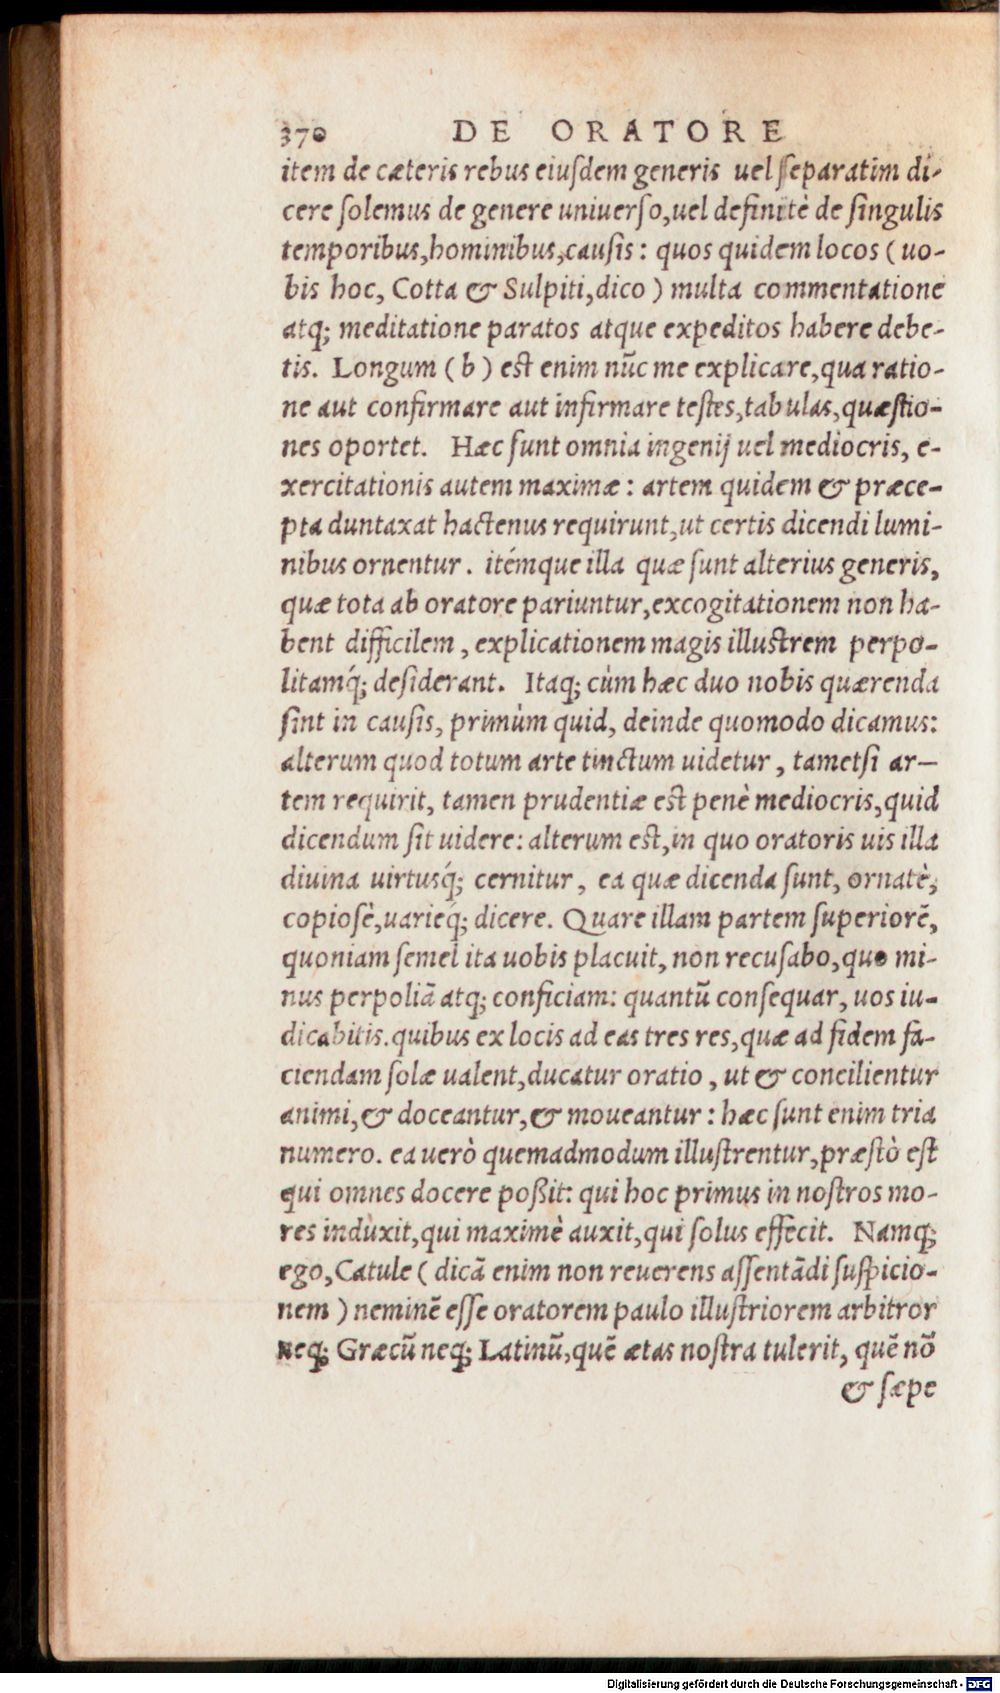 370 DE ORATORE
item de cæteris rebus eiuſdem generis uel ſeparatim di-
cere ſolemus de genere uniuerſo,uel definitè de ſingulis
temporibus,hominibus,cauſis: quos quidem locos ( uo-
bis hoc, Cotta & Sulpiti,dico ) multa commentatione
atq; meditatione paratos atque expeditos habere debe-
tis. Longum ( b ) est enim nūc me explicare,qua ratio-
ne aut confirmare aut infirmare testes,tabulas,quæstio-
nes oportet. Hæc ſunt omnia ingenij uel mediocris, e-
xercitationis autem maximæ: artem quidem & præce-
pta duntaxat hactenus requirunt,ut certis dicendi lumi-
nibus ornentur. itémque illa quæ ſunt alterius generis,
quæ tota ab oratore pariuntur,excogitationem non ha-
bent difficilem, explicationem magis illustrem perpo-
litamq́; deſiderant. Itaq; cùm hæc duo nobis quærenda
ſint in cauſis, primùm quid, deinde quomodo dicamus:
alterum quod totum arte tinctum uidetur, tametſi ar-
tem requirit, tamen prudentiæ est penè mediocris,quid
dicendum ſit uidere: alterum est,in quo oratoris uis illa
diuina uirtusq́; cernitur, ea quæ dicenda ſunt, ornatè,
copioſè,uarieq́; dicere. Quare illam partem ſuperiorē,
quoniam ſemel ita uobis placuit, non recuſabo,quo mi-
nus perpoliā atq; conficiam: quantū conſequar, uos iu-
dicabitis.quibus ex locis ad eas tres res,quæ ad fidem fa-
ciendam ſolæ ualent,ducatur oratio, ut & concilientur
animi,& doceantur,& moueantur: hæc ſunt enim tria
numero. ea uerò quemadmodum illuſtrentur,præſtò eſt
qui omnes docere poßit: qui hoc primus in noſtros mo-
res induxit,qui maximè auxit,qui ſolus effecit. Namq;
ego,Catule ( dicā enim non reuerens aſſentādi ſuſpicio-
nem ) neminē eſſe oratorem paulo illuſtriorem arbitror
neq; Græcū neq; Latinū,quē ætas noſtra tulerit, quē nō
& ſæpe
Digitalisierung gefördert durch die Deutsche Forschungsgemeinschaft - DFG